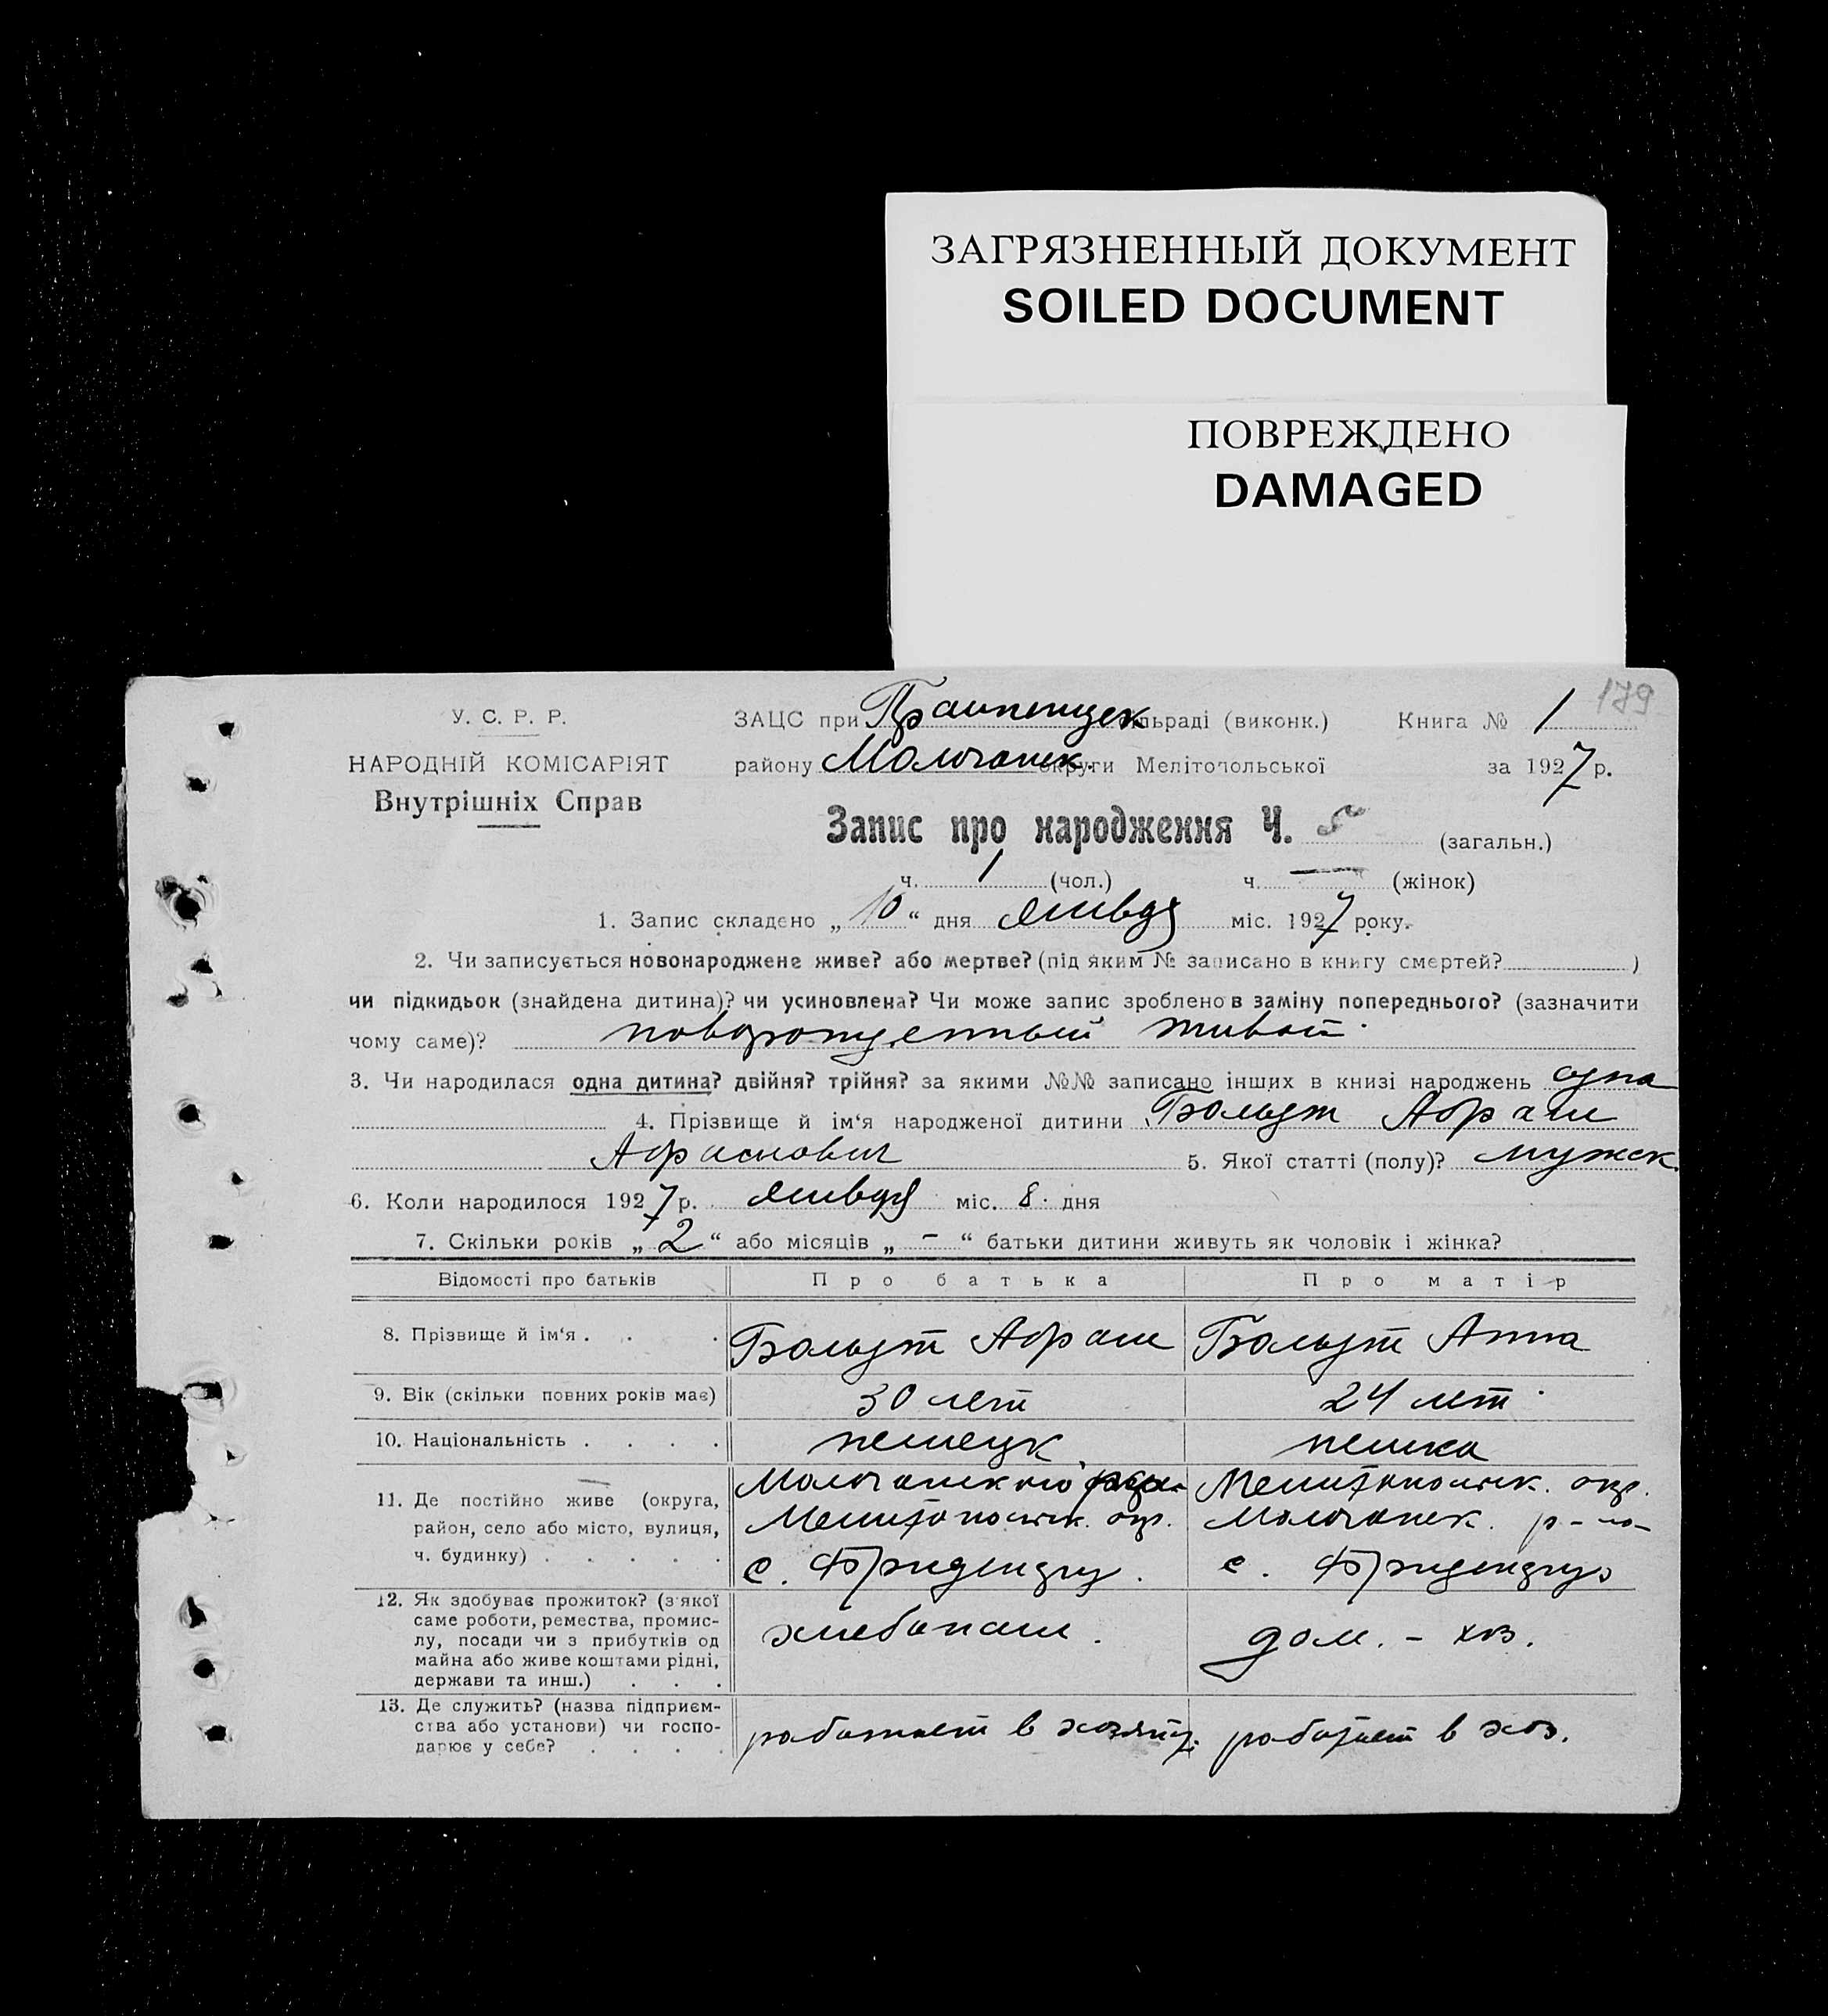 ЗАГРЯЗНЕННЫЙ ДОКУМЕНТ
SOILED DOCUMENT
ПОВРЕЖДЕНО
DAMAGED
179
У. С. Р. Р.
ЗАЦС при сільраді (виконк.) Книга № 1
НАРОДНІЙ КОМІСАРІЯТ
району Молочанск. округи Мелітопольської за 1927 р.
Внутрішніх Справ
Запис про народження Ч. 5 (загальн.)
ч. 1 (чол.) ч. — (жінок)
1. Запис складено „10“ дня января міс. 1927 року.
2. Чи записується новонароджене живе? або мертве? (під яким № записано в книгу смертей? )
чи підкидьок (знайдена дитина)? чи усиновлена? Чи може запис зроблено в заміну попереднього? (зазначити
чому саме)? новорожденный живой
3. Чи народилася одна дитина? двійня? трійня? за якими №№ записано інших в книзі народжень одна
4. Прізвище й ім'я народженої дитини Больдт Абрам
Абрамович 5. Якої статті (полу)? мужск.
6. Коли народилося 1927 р. января міс. 8 дня
7. Скільки років „2“ або місяців „—“ батьки дитини живуть як чоловік і жінка?
Відомості про батьків Про батька Про матір
8. Прізвище й ім'я . . . Больдт Абрам Больдт Анна
9. Вік (скільки повних років має) 30 лет 24 лет
10. Національність . . . . немецк. немка
11. Де постійно живе (округа, район, село або місто, вулиця, ч. будинку) . . . . .
Молочанского
Мелитопольск. окр.
с.
Мелитопольск. окр.
Молочанск. р-на
с.
12. Як здобуває прожиток? (з якої саме роботи, ремества, промислу, посади чи з прибутків од майна або живе коштами рідні, держави та инш.) . . .
хлебопаш.
дом. - хоз.
13. Де служить? (назва підприємства або установи) чи господарює у себе? . . . .
работает в хозяйст.
работает в хоз.